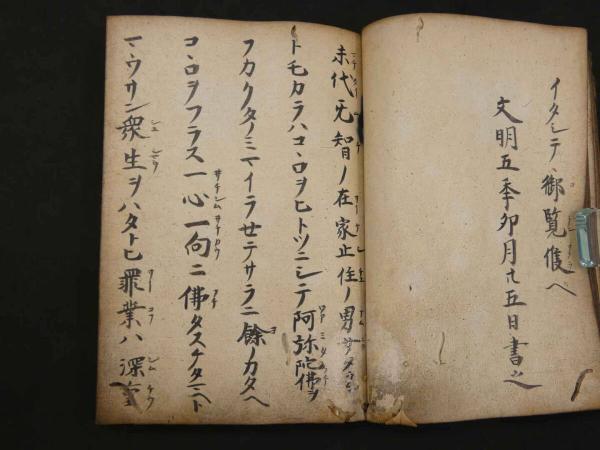 イタシテ御覧候ヘ
文明五季卯月廿五日書之
末代无智ノ在家止住ノ男女タラン
トモカラハコヽロヲヒトツニシテ阿弥陀佛ヲ
フカクタノミマイラセテサラニ餘ノカタヘ
コヽロヲフラス一心一向ニ佛タスケタマヘト
マウサン衆生ヲハタトヒ罪業ハ深重